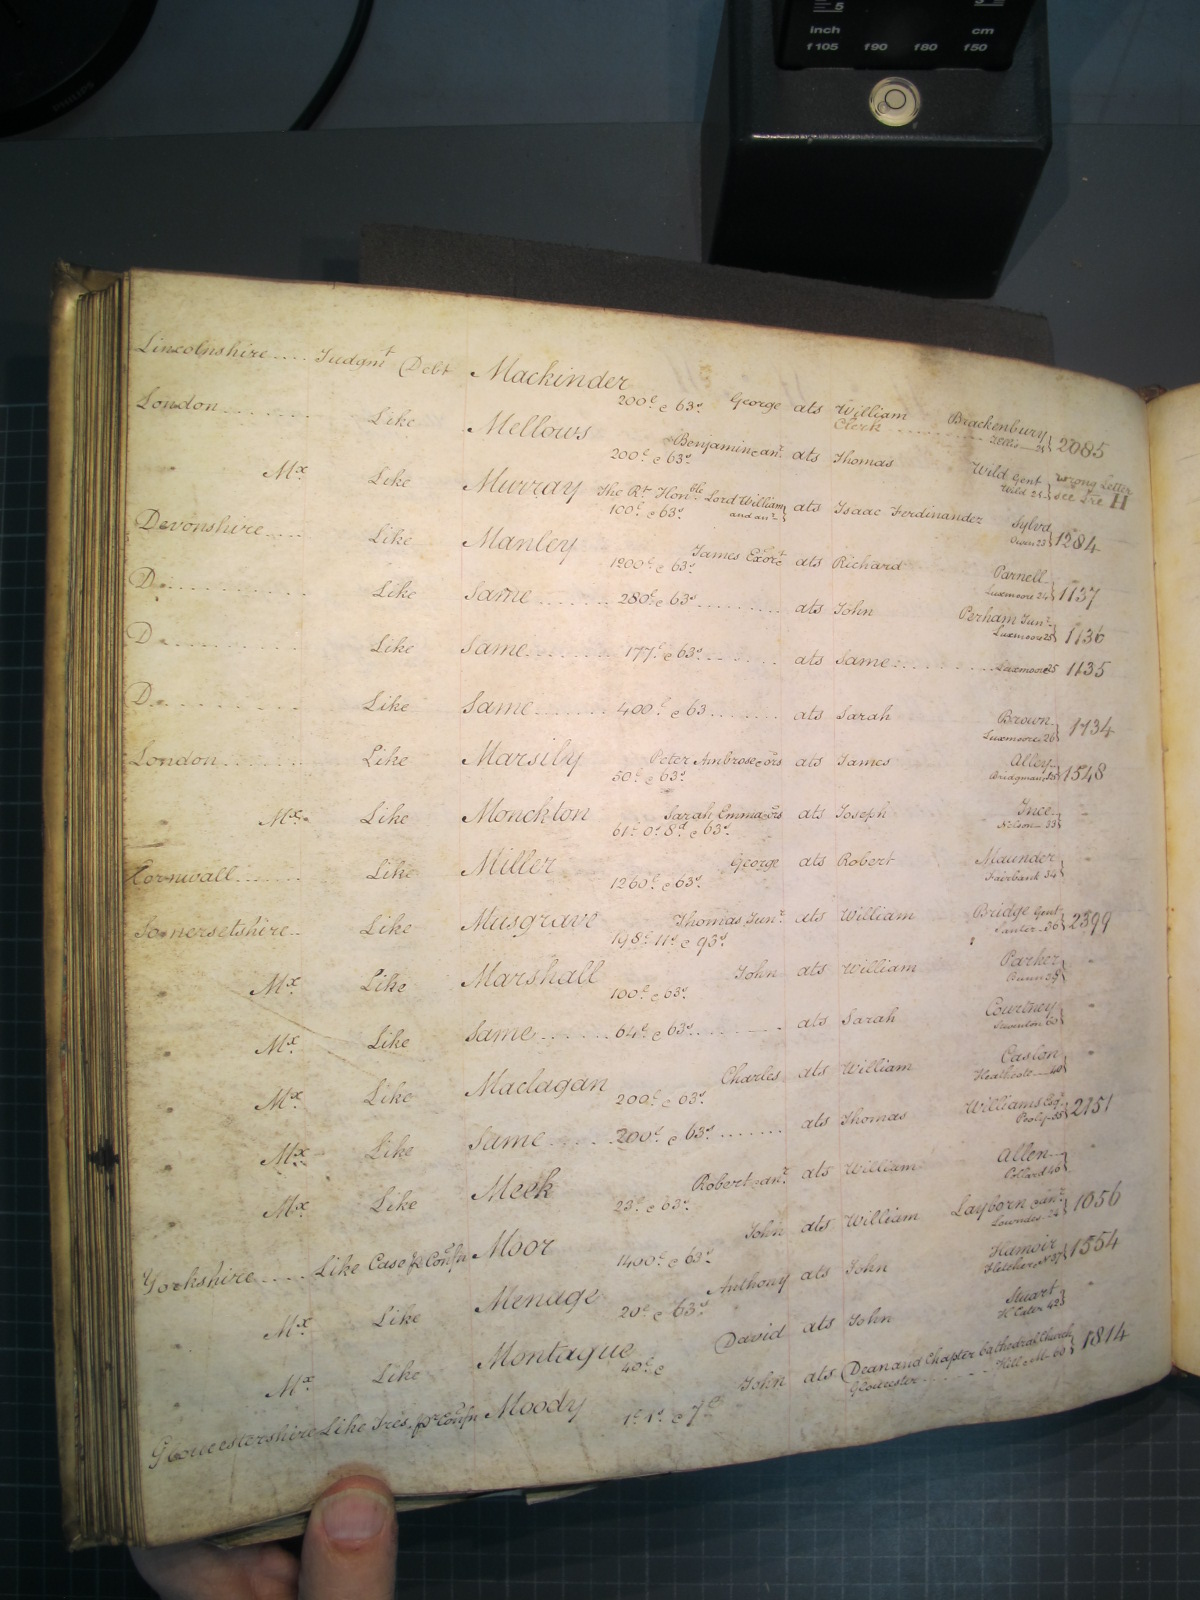 5
inch cm
f105 f90 f80 f50
PHILIPS
Lincolnshire .... Judgmt Debt Mackinder 200£ & 63s George ats William Clerk ........ Brackenbury 2085
London ........ Like Mellows 200£ & 63s Benjamin & anr ats Thomas Wild Gent Wild 25 wrong Letter see Tre H
Mx Like Murray The Rt Honble Lord William and anr 100£ & 63s ats Isaac Ferdinander Sylva Owen 23 1284
Devonshire .... Like Manley 1200£ & 63s James Exort ats Richard Parnell Luxmoore 24 1137
Do ........ Like Same ...... 280£ & 63s ........ ats John Perham Junr Luxmoore 25 1136
Do ........ Like Same ........ 177£ & 63s ........ ats Same ........ Luxmoore 25 1135
Do ........ Like Same ........ 400£ & 63 ........ ats Sarah Brown Luxmoore 26 1134
London ........ Like Marsily Peter Ambrose & ors 50£ & 63s ats James Alley Bridgman 1548
Mx Like Monckton Sarah Emma & ors 61£ 0s 8d & 63s ats Joseph Ince Nelson 33 "
Cornwall ...... Like Miller 1260£ & 63s George ats Robert Maunder Fairbank 34 "
Somersetshire .. Like Musgrave 198£ 11s & 93s Thomas Junr ats William Bridge Gent 36 2399
Mx Like Marshall 100£ & 63s John ats William Parker "
Mx Like Same ...... 64£ & 63s ........ ats Sarah Courtney "
Mx Like Maclagan 200£ & 63s Charles ats William Caslon Heathcote "
Mx Like Same ...... 200£ & 63s ...... ats Thomas Williams Esqr 2151
Mx Like Meek 23£ & 63s Robert & anr ats William Allen Collard 40 "
Yorkshire .... Like Case pr Confn Moor 1400£ & 63s John ats William Layborn & anr Lowndes 24 1056
Mx Like Menage 20£ & 63s Anthony ats John Hamoir Fletcher 1554
Mx Like Montague 40£ & David ats John Stuart "
Gloucestershire Like Tres. pr Confn Moody 1£ 1s & 7£ John ats Dean and Chapter Cathedral Church Gloucester ........ Hill 60 1814